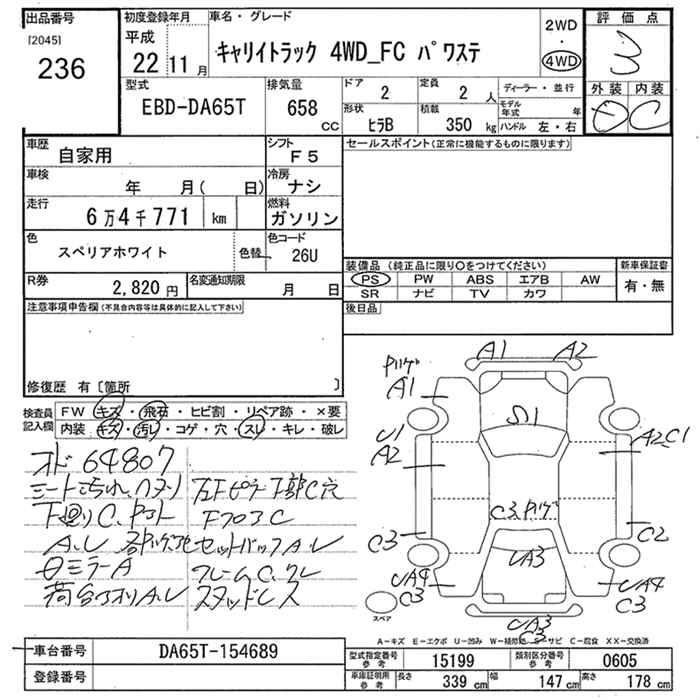 出品番号
[2045]
236
初度登録年月
平成
22 11 月
車名・グレード
キャリイトラック 4WD_FC パワステ
2WD
・
4WD
評価点
3
外装 内装
E C
型式
EBD-DA65T
排気量
658 CC
ドア
2
定員
2 人
ディーラー・並行
形状
ヒラB
積載
350 kg
モデル年式 年
ハンドル 左・右
車歴
自家用
シフト
F5
車検
年 月( 日)
冷房
ナシ
走行
6万4千771 km
燃料
ガソリン
色
スペリアホワイト
色替
色コード
26U
R券
2,820 円
名変通知期限
月 日
セールスポイント(正常に機能するものに限ります)
装備品 (純正品に限り○をつけてください)
PS PW ABS エアB AW
SR ナビ TV カワ
新車保証書
有・無
後日品
注意事項申告欄(不具合内容等は具体的に記入して下さい)
修復歴 有〔箇所 〕
検査員記入欄
FW キズ・飛石・ヒビ割・リペア跡・×要
内装 キズ・汚レ・コゲ・穴・スレ・キレ・破レ
オド 64807
下廻りC.
A.U
セットバックA.U
ミラーA
フレームC.
A1 A2
A1
S1
U1
A2
A2.C1
C3
C3
C2
UA3
UA4
C3
UA4
C3
UA3
C3
スペア
A-キズ E-エクボ U-凹み W-補修跡 S-サビ C-腐食 XX-交換済
車台番号
DA65T-154689
登録番号
型式指定番号 参考
15199
類別区分番号 参考
0605
車庫証明用 参考
長さ 339 cm
幅 147 cm
高さ 178 cm